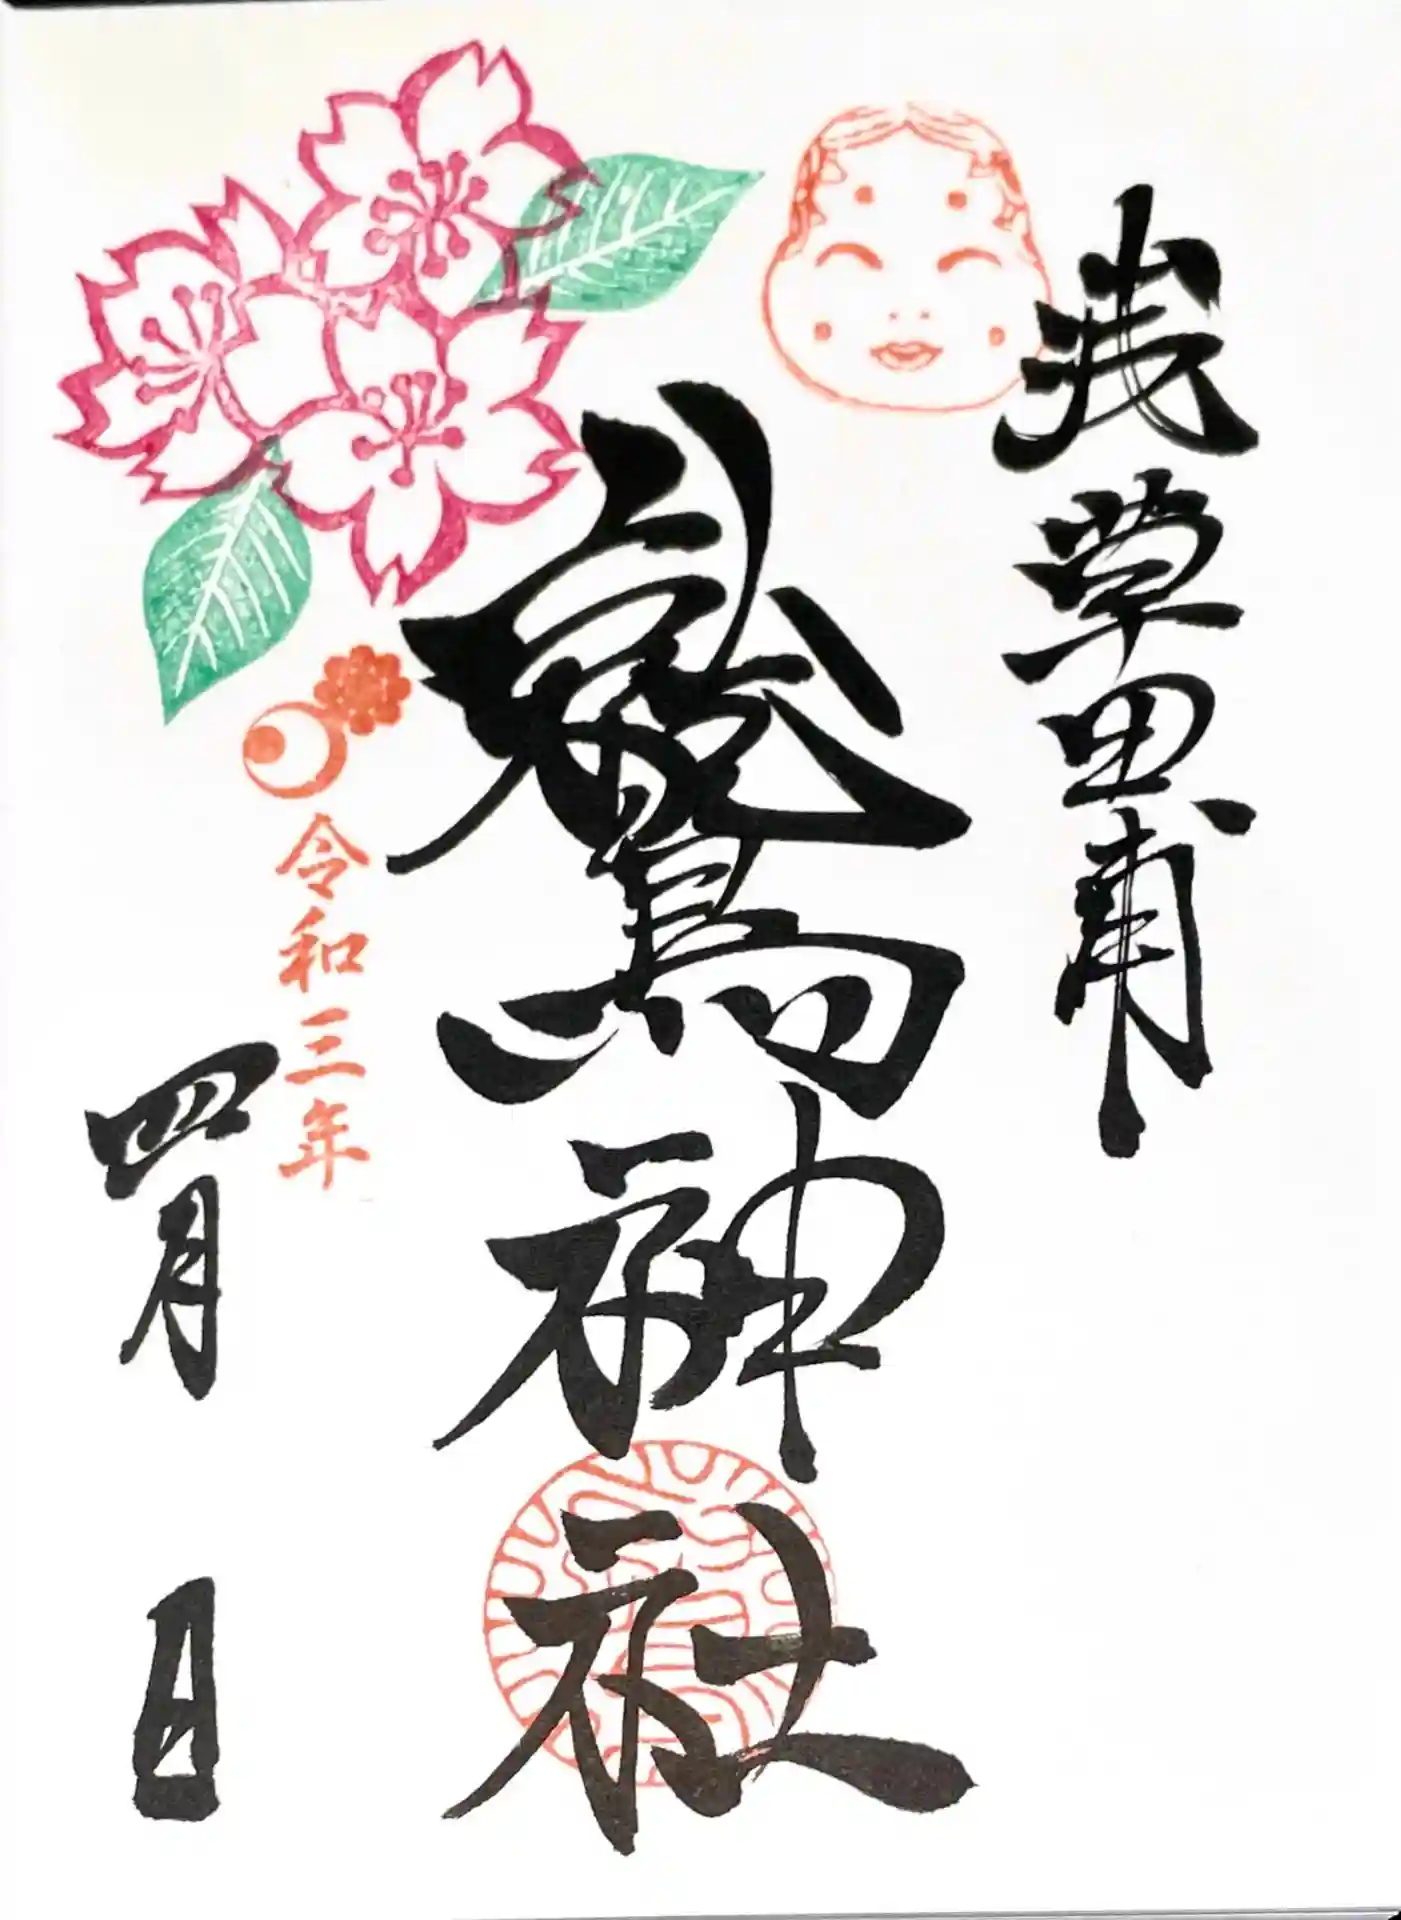 浅草田甫
鷲神社
令和三年
四月
日